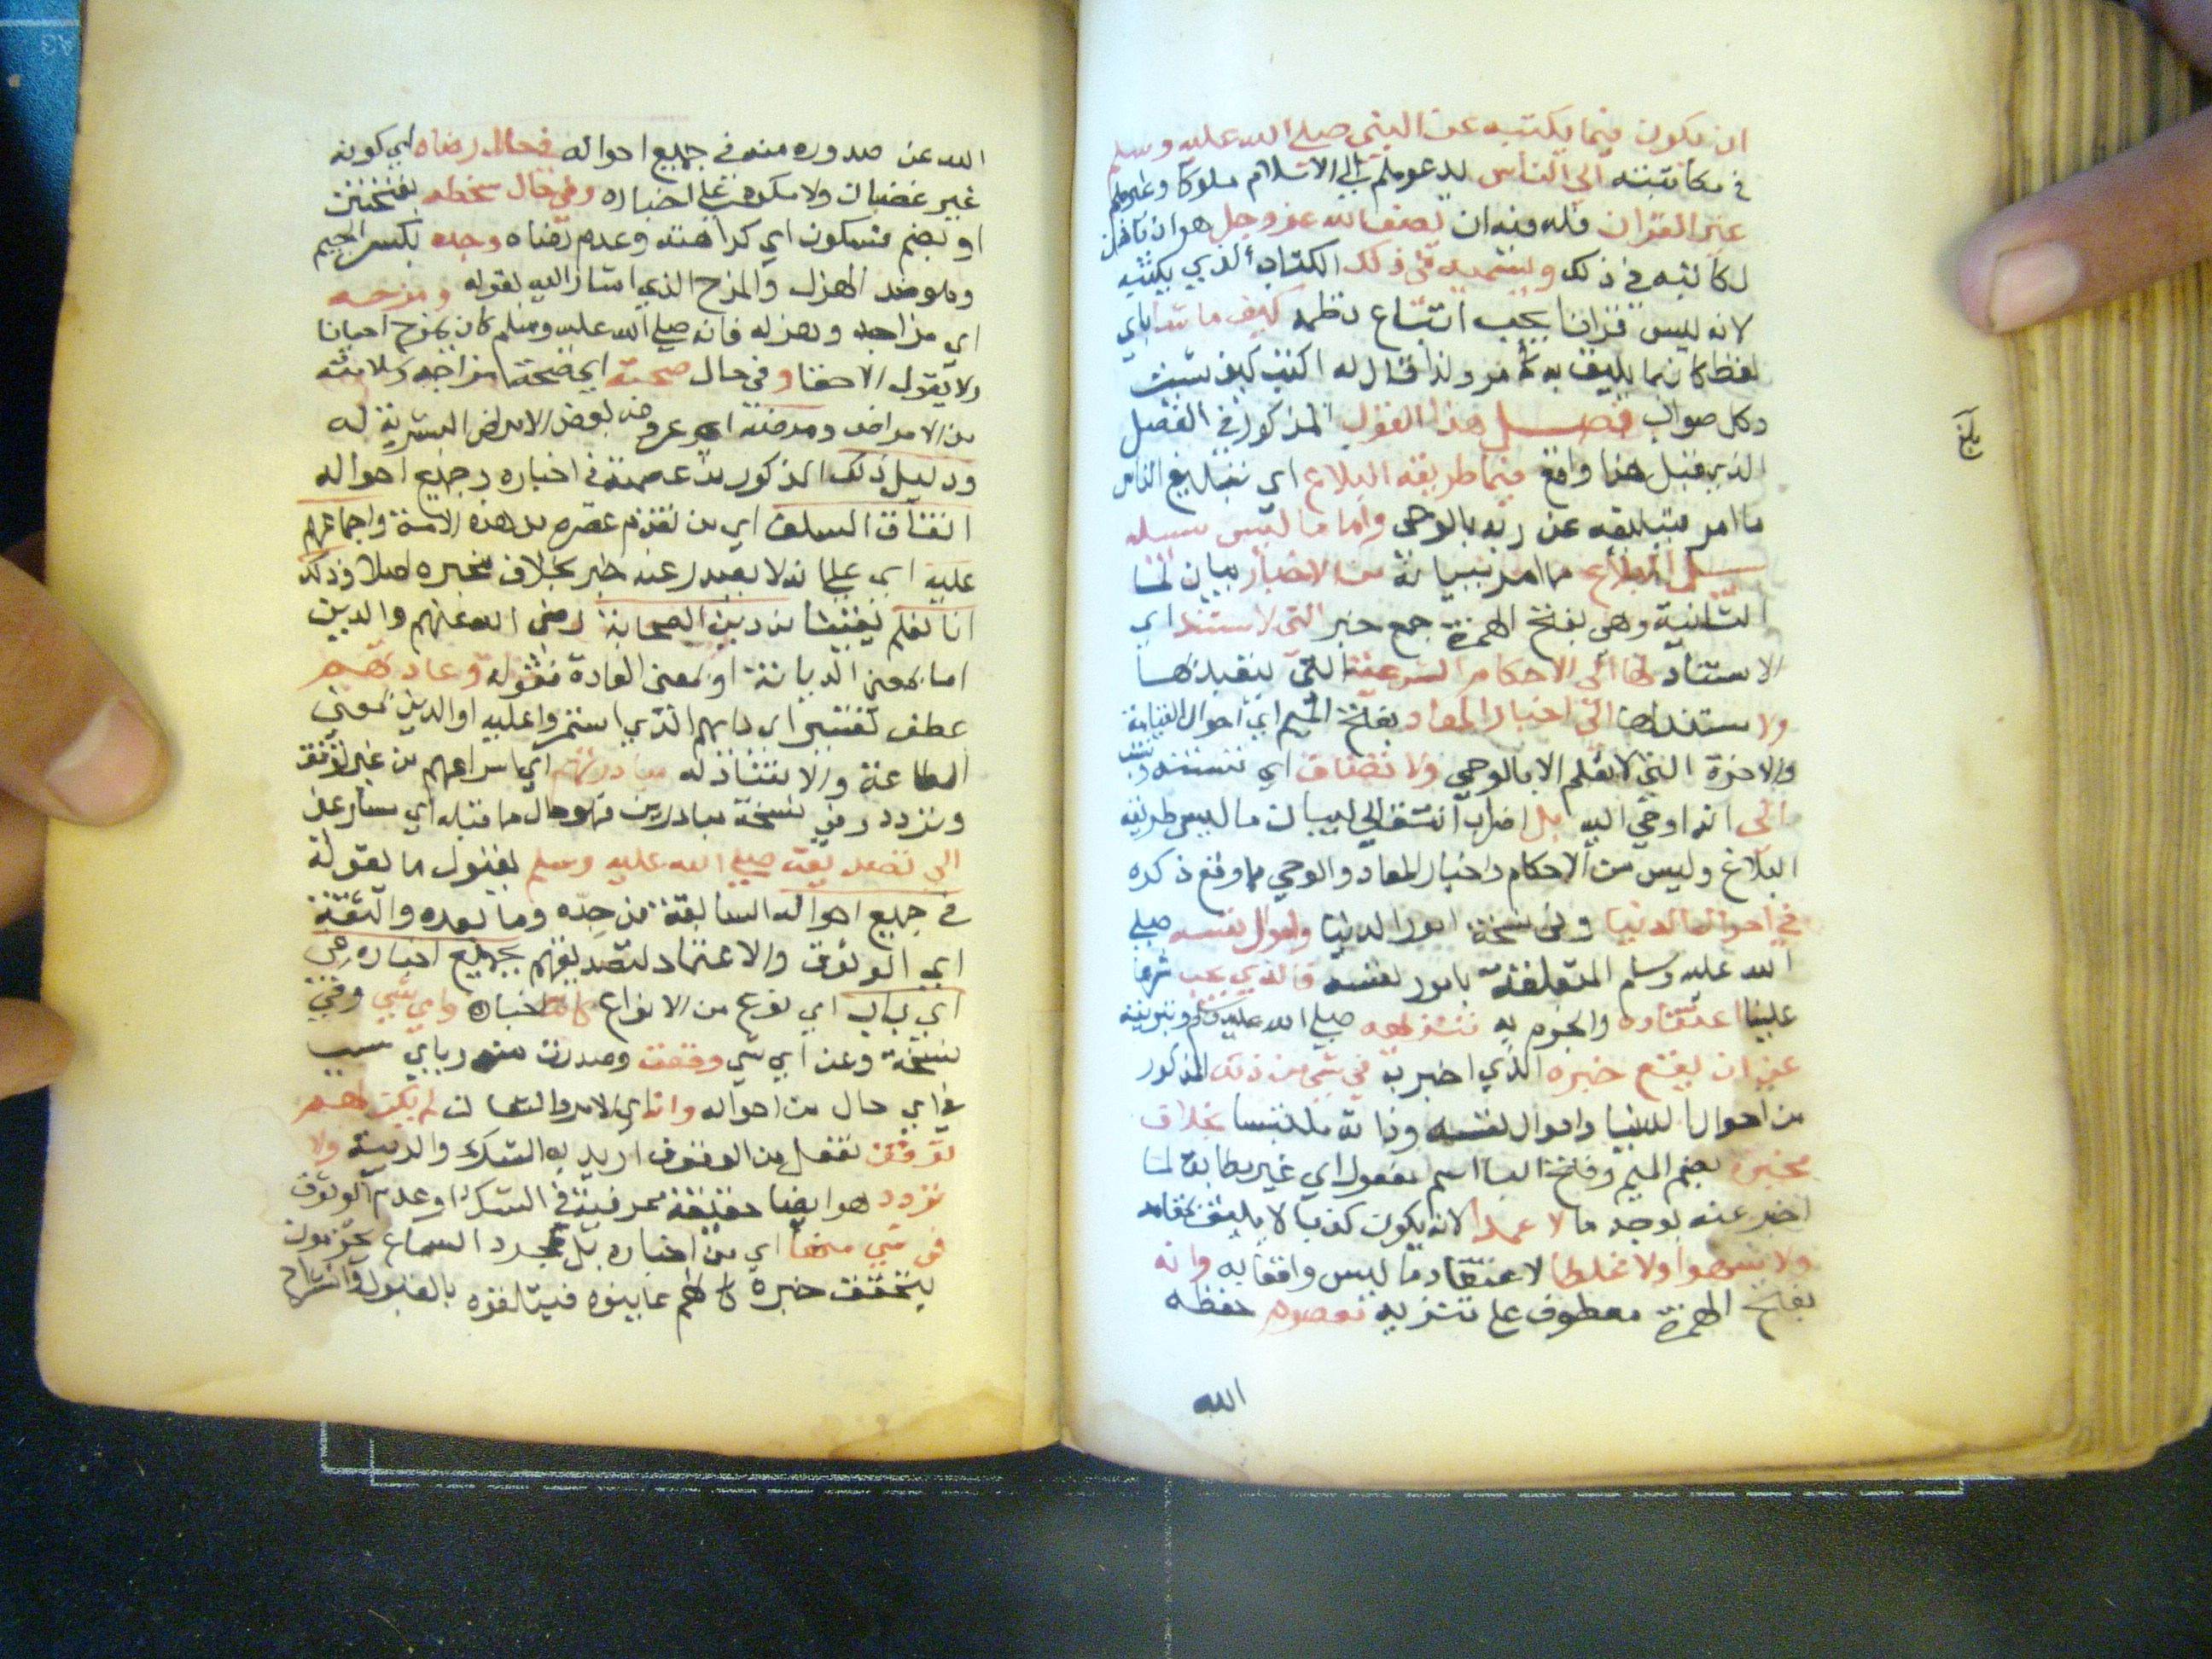 ان يكون فيما يكتبه عن النبي صلى الله عليه وسلم
في مكاتبته الى الناس ليدعوهم الى الاسلام ملوكا وغيرهم
غير القران فله منه ان يصف الله عز وجل هو ان ياذن
لكاتبه في ذلك ويسميه في ذلك الكتاب الذي يكتبه
لانه ليس قرانا يجب اتباع نظمه كيف ما شا باي
لفظ كان مما يليق به كما مر ولذا قال له اكتب كيف شئت
وكل صواب فصل هذا القول المذكور في الفصل
الذي قبل هذا واقع فيما طريقه البلاغ اي تبليغ الناس
ما امر بتبليغه عن ربه بالوحي واما ما ليس سبيله
سبيل البلاغ مما امر ببيانه من الاخبار بيان لما
الثانية وهي بفتح الهمزة جمع خبر التي لا مستند اي
لا استناد لها الى الاحكام الشرعية التي يتعبد بها
ولا مستند لها الى اخبار المعاد بفتح الميم اي احوال القيامة
والاخرة التي لا تعلم الا بالوحي ولا تضاف اي تسند وتنسب
الى انه اوحي اليه بل اضراب انتقالي لبيان ما ليس طريقه
البلاغ وليس من الاحكام واخبار المعاد والوحي مما وقع ذكره
في احوال الدنيا وفي نسخة امور الدنيا واحوال نفسه صلى
الله عليه وسلم المتعلقة بامور نفسه فالذي يجب شرعا
علينا اعتقاده والجزم به تنزيهه صلى الله عليه وسلم وتبرئته
عن ان يقع خبره الذي اخبر به في شي من ذلك المذكور
من احوال الدنيا واحوال نفسه وذاته ملتبسا بخلاف
مخبره بضم الميم وفتح البا اسم مفعول اي غير مطابق لما
اخبر عنه بوجه ما لا عمدا لانه يكون كذبا لا يليق بمقامه
ولا سهوا ولا غلطا لاعتقاد ما ليس واقعا به وانه
بفتح الهمزة معطوف على تنزيه معصوم حفظه
الله
بلغ
الله عن صدوره منه في جميع احواله في حال رضاه اي كونه
غير غضبان ولا مكره على اخباره وفي حال سخطه بفتحتين
او بضم فسكون اي كراهته وعدم رضاه وجده بكسر الجيم
وهو ضد الهزل والمزح الذي اشار اليه بقوله ومزحه
اي مزاحه وهزله فانه صلى الله عليه وسلم كان يمزح احيانا
ولا يقول الا حقا وفي حال صحته اي صحة مزاجه وسلامته
من الامراض ومرضه اي عروض بعض الامراض البشرية له
ودليل ذلك المذكور من عصمته في اخباره وجميع احواله
اتفاق السلف اي من تقدم عصره من هذه الامة واجماعهم
عليه اي على انه لا يصدر عنه خبر بخلاف مخبره اصلا وذلك
انا نعلم يقينا من دين الصحابة رضي الله عنهم والدين
اما بمعنى الديانة او بمعنى العادة فقوله وعادتهم
عطف تفسير اي دابهم الذي استمروا عليه او الدين بمعنى
الطاعة والانقياد له مبادرتهم اي اسراعهم من غير توقف
وتردد وفي نسخة مبادرين فهو حال مما قبله اي مسارعين
الى تصديقه صلى الله عليه وسلم بقبول ما يقوله
في جميع احواله السابقة من جده وما بعده والثقة
اي الوثوق والاعتماد لتصديقهم بجميع اخباره في
اي باب اي نوع من الانواع كانت اخباره وعن اي شي وفي
نسخة وعن اي شي وقعت وصدرت منه وباي سبب
في اي حال من احواله وانه اي الامر والشان لم يكن لهم
توقف تفعل من الوقوف اريد به الشك والريبة ولا
تردد هو ايضا حقيقة عرفية في الشك او عدم الوثوق
في شي منها اي من اخباره بل بمجرد السماع يجزمون
بتحقق خبره كانهم عاينوه فيتلقوه بالقبول وانشراح